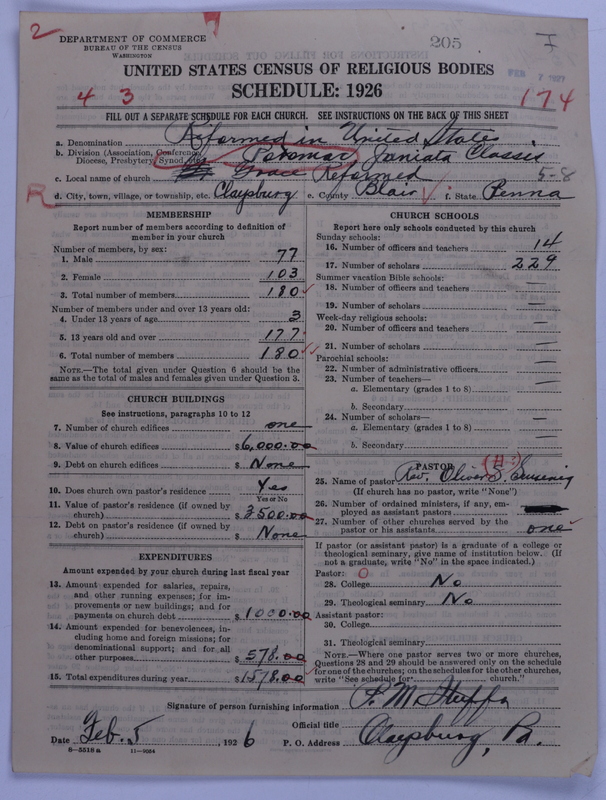 2
DEPARTMENT OF COMMERCE
BUREAU OF THE CENSUS
WASHINGTON
205
I
UNITED STATES CENSUS OF RELIGIOUS BODIES
FEB 7 1927
SCHEDULE: 1926
4 3
174
FILL OUT A SEPARATE SCHEDULE FOR EACH CHURCH. SEE INSTRUCTIONS ON THE BACK OF THIS SHEET
a. Denomination Reformed in United States
b. Division (Association, Conference, Diocese, Presbytery, Synod, etc.) Potomac, Juniata Classis
c. Local name of church Grace Reformed
5-8
R
d. City, town, village, or township, etc. Claysburg e. County Blair f. State Penna
MEMBERSHIP
Report number of members according to definition of
member in your church
Number of members, by sex:
1. Male 77
2. Female 103
3. Total number of members 180
Number of members under and over 13 years old:
4. Under 13 years of age 3
5. 13 years old and over 177
6. Total number of members 180
NOTE.—The total given under Question 6 should be
same as the total of males and females given under Question 3.
CHURCH BUILDINGS
See instructions, paragraphs 10 to 12
7. Number of church edifices one
8. Value of church edifices $6,000.00
9. Debt on church edifices $ None
10. Does church own pastor's residence Yes
Yes or No
11. Value of pastor's residence (if owned by
church) $3500.00
12. Debt on pastor's residence (if owned by
church) $ None
EXPENDITURES
Amount expended by your church during last fiscal year
13. Amount expended for salaries, repairs,
and other running expenses; for im-
provements or new buildings; and for
payments on church debt $1000.00
14. Amount expended for benevolences, in-
cluding home and foreign missions; for
denominational support; and for all
other purposes $578.00
15. Total expenditures during year $1578.00
CHURCH SCHOOLS
Report here only schools conducted by this church
Sunday schools:
16. Number of officers and teachers 14
17. Number of scholars 229
Summer vacation Bible schools:
18. Number of officers and teachers —
19. Number of scholars —
Week-day religious schools:
20. Number of officers and teachers —
21. Number of scholars —
Parochial schools:
22. Number of administrative officers —
23. Number of teachers—
a. Elementary (grades 1 to 8) —
b. Secondary —
24. Number of scholars—
a. Elementary (grades 1 to 8) —
b. Secondary —
PASTOR
25. Name of pastor Rev. Oliver S.
(If church has no pastor, write "None")
26. Number of ordained ministers, if any, em-
ployed as assistant pastors
27. Number of other churches served by the
pastor or his assistants one
If pastor (or assistant pastor) is a graduate of a college or
theological seminary, give name of institution below. (If
not a graduate, write "No" in the space indicated.)
Pastor: 0
28. College No
29. Theological seminary No
Assistant pastor:
30. College
31. Theological seminary
NOTE.—Where one pastor serves two or more churches,
Questions 28 and 29 should be answered only on the schedule
for one of the churches; on the schedules for the other churches,
write "See schedule for church."
Signature of person furnishing information
Official title
Date Feb. 5, 1926 P. O. Address Claysburg, Pa.
8—5518a 11—9054